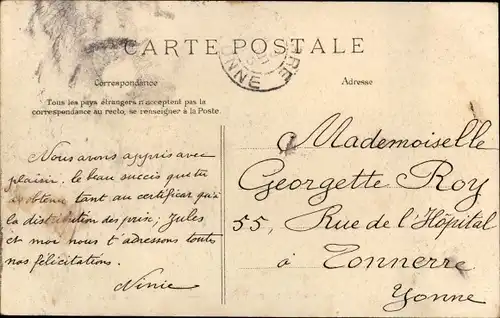 CARTE POSTALE
Correspondance
Adresse
Tous les pays étrangers n'acceptent pas la
correspondance au recto, se renseigner à la Poste
Nous avons appris avec
plaisir le beau succès que tu
as obtenu tant au certificat qu'à
la distribution des prix; Jules
et moi nous t'adressons toutes
nos félicitations.
Ninie
Mademoiselle
Georgette Roy
55, Rue de l'Hôpital
à Tonnerre
Yonne